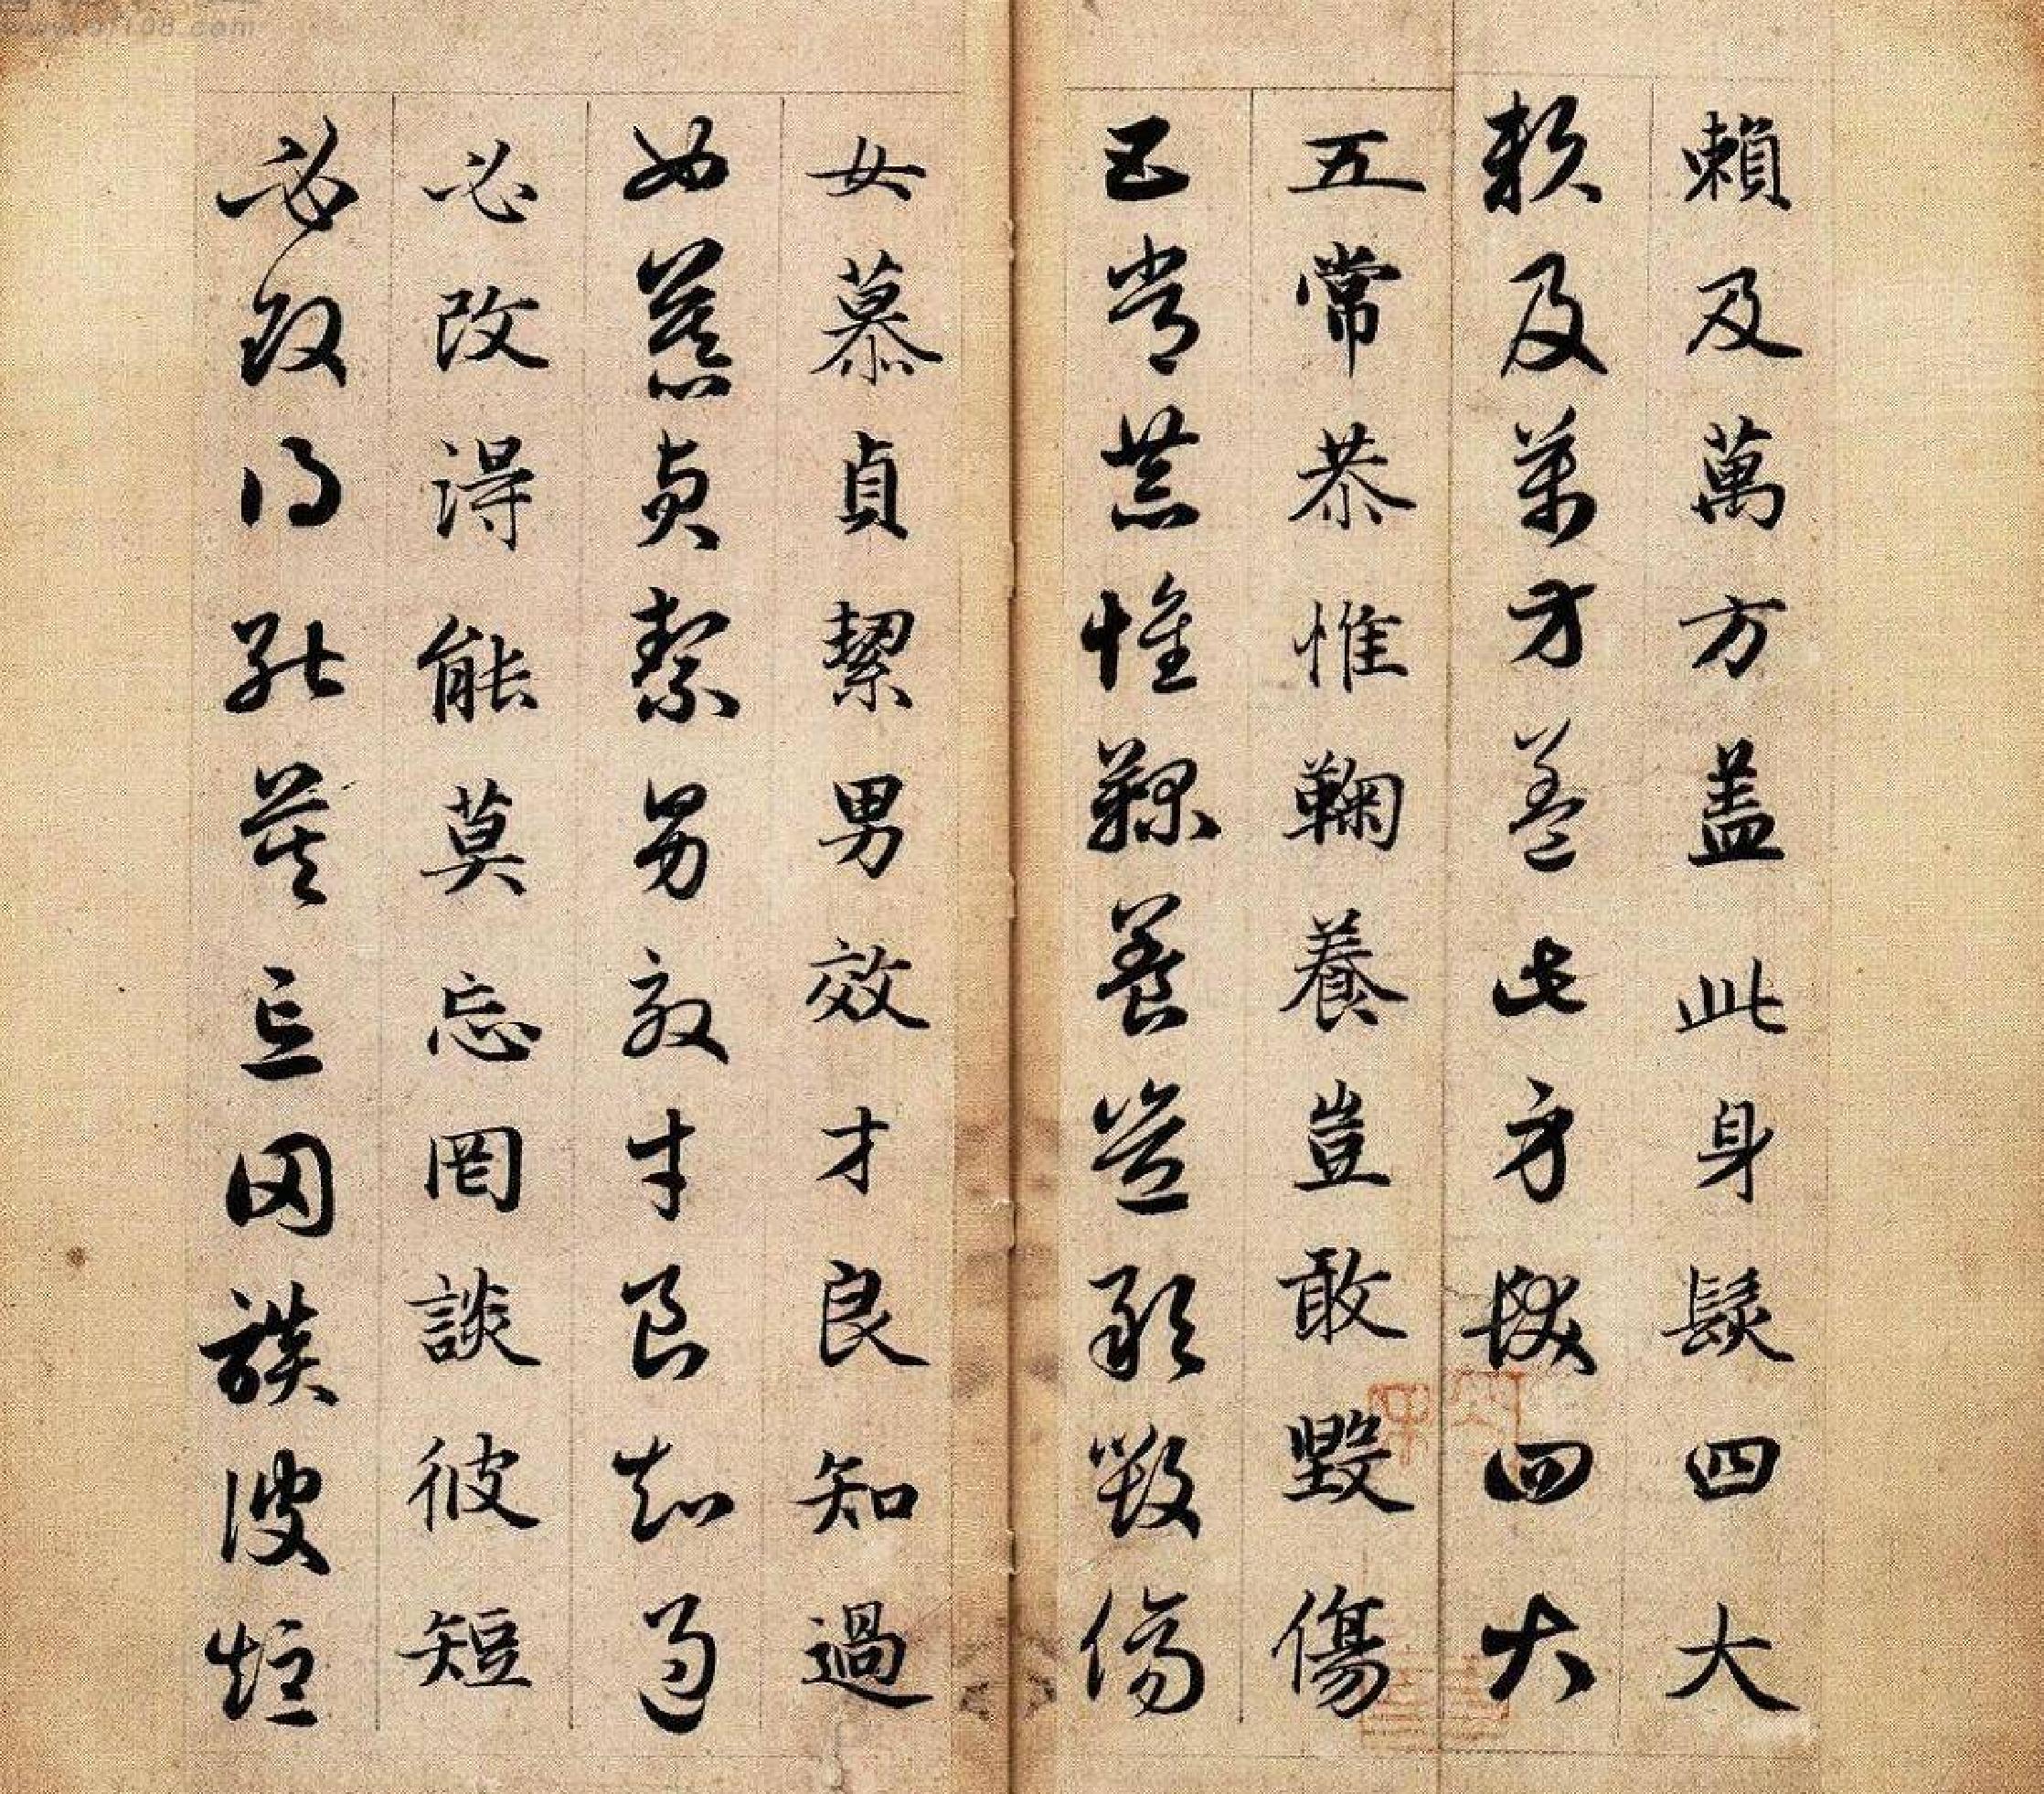 賴及萬方盖此身髮四大
賴及萬方盖此身髮四大
五常恭惟鞠養豈敢毀傷
五常恭惟鞠養豈敢毀傷
女慕貞絜男效才良知過
女慕貞絜男效才良知過
必改得能莫忘罔談彼短
必改得能莫忘罔談彼短